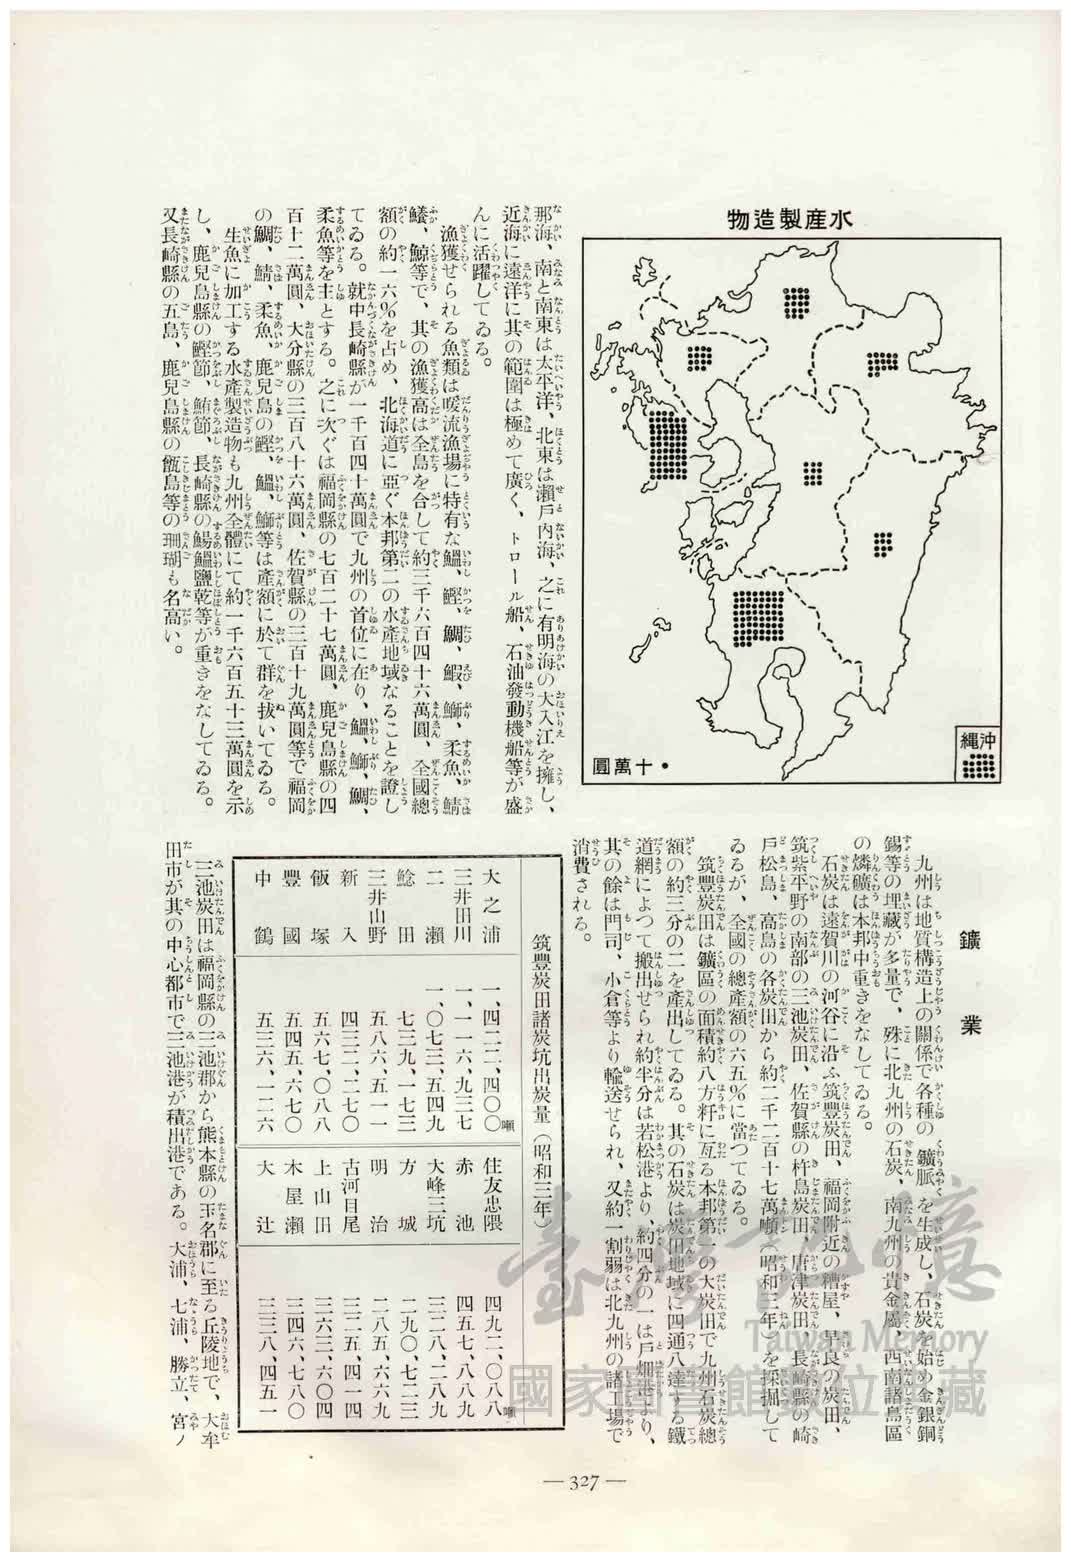 水産製造物
沖縄
・十萬圓
那海、南と南東は太平洋、北東は瀨戸內海、之に有明海の大入江を擁し、
近海に遠洋に其の範圍は極めて廣く、トロール船、石油發動機船等が盛
んに活躍してゐる。
漁獲せられる魚類は暖流漁場に特有な鰮、鰹、鯛、鰕、鰤、柔魚、鯖
鱶、鯨等で、其の漁獲高は全島を合して約三千六百四十六萬圓、全國總
額の約一六%を占め、北海道に亞ぐ本邦第二の水產地域なることを證し
てゐる。就中長崎縣が一千百四十萬圓で九州の首位に在り、鰮、鰤、鯛、
柔魚等を主とする。之に次ぐは福岡縣の七百二十七萬圓、鹿兒島縣の四
百十二萬圓、大分縣の三百八十六萬圓、佐賀縣の三百十九萬圓等で福岡
の鯛、鯖、柔魚、鹿兒島の鰹、鰮、鰤等は產額に於て群を拔いてゐる。
生魚に加工する水產製造物も九州全體にて約一千六百五十三萬圓を示
し、鹿兒島縣の鰹節、鮪節、長崎縣の鯣鰮鹽乾等が重きをなしてゐる。
又長崎縣の五島、鹿兒島縣の甑島等の珊瑚も名高い。
鑛業
九州は地質構造上の關係で各種の鑛脈を生成し、石炭を始め金銀銅
錫等の埋藏が多量で、殊に北九州の石炭、南九州の貴金屬、西南諸島區
の燐礦は本邦中重きをなしてゐる。
石炭は遠賀川の河谷に沿ふ筑豐炭田、福岡附近の糟屋、早良の炭田、
筑紫平野の南部の三池炭田、佐賀縣の杵島炭田、唐津炭田、長崎縣の崎
戸松島、高島の各炭田から約二千二百十七萬噸(昭和三年)を採掘して
ゐるが、全國の總產額の六五%に當つてゐる。
筑豐炭田は鑛區の面積約八方粁に亙る本邦第一の大炭田で九州石炭總
額の約三分の二を產出してゐる。其の石炭は炭田地域に四通八達する鐵
道網によつて搬出せられ約半分は若松港より、約四分の一は戸畑港より、
其の餘は門司、小倉等より輸送せられ、又約一割弱は北九州の諸工場で
消費される。
筑豐炭田諸炭坑出炭量(昭和三年)
大之浦 一、四二二、四〇〇噸 住友忠隈 四九二、〇八八噸
三井田川 一、一一六、九三七 赤池 四五七、八八九
二瀨 一、〇七三、五四九 大峰三坑 三二八、二八九
鯰田 七三九、一七三 方城 二九〇、七二三
三井山野 五八六、五一一 明治 二八五、六六九
新入 四三二、二七〇 古河目尾 三二五、四一四
飯塚 五六七、〇八八 上山田 三六三、六〇四
豐國 五四五、六七〇 木屋瀨 三四六、七八〇
中鶴 五三六、一二六 大辻 三三八、四五一
三池炭田は福岡縣の三池郡から熊本縣の玉名郡に至る丘陵地で、大牟
田市が其の中心都市で三池港が積出港である。大浦、七浦、勝立、宮ノ
— 327 —
臺灣記憶
Taiwan Memory
國家圖書館數位典藏